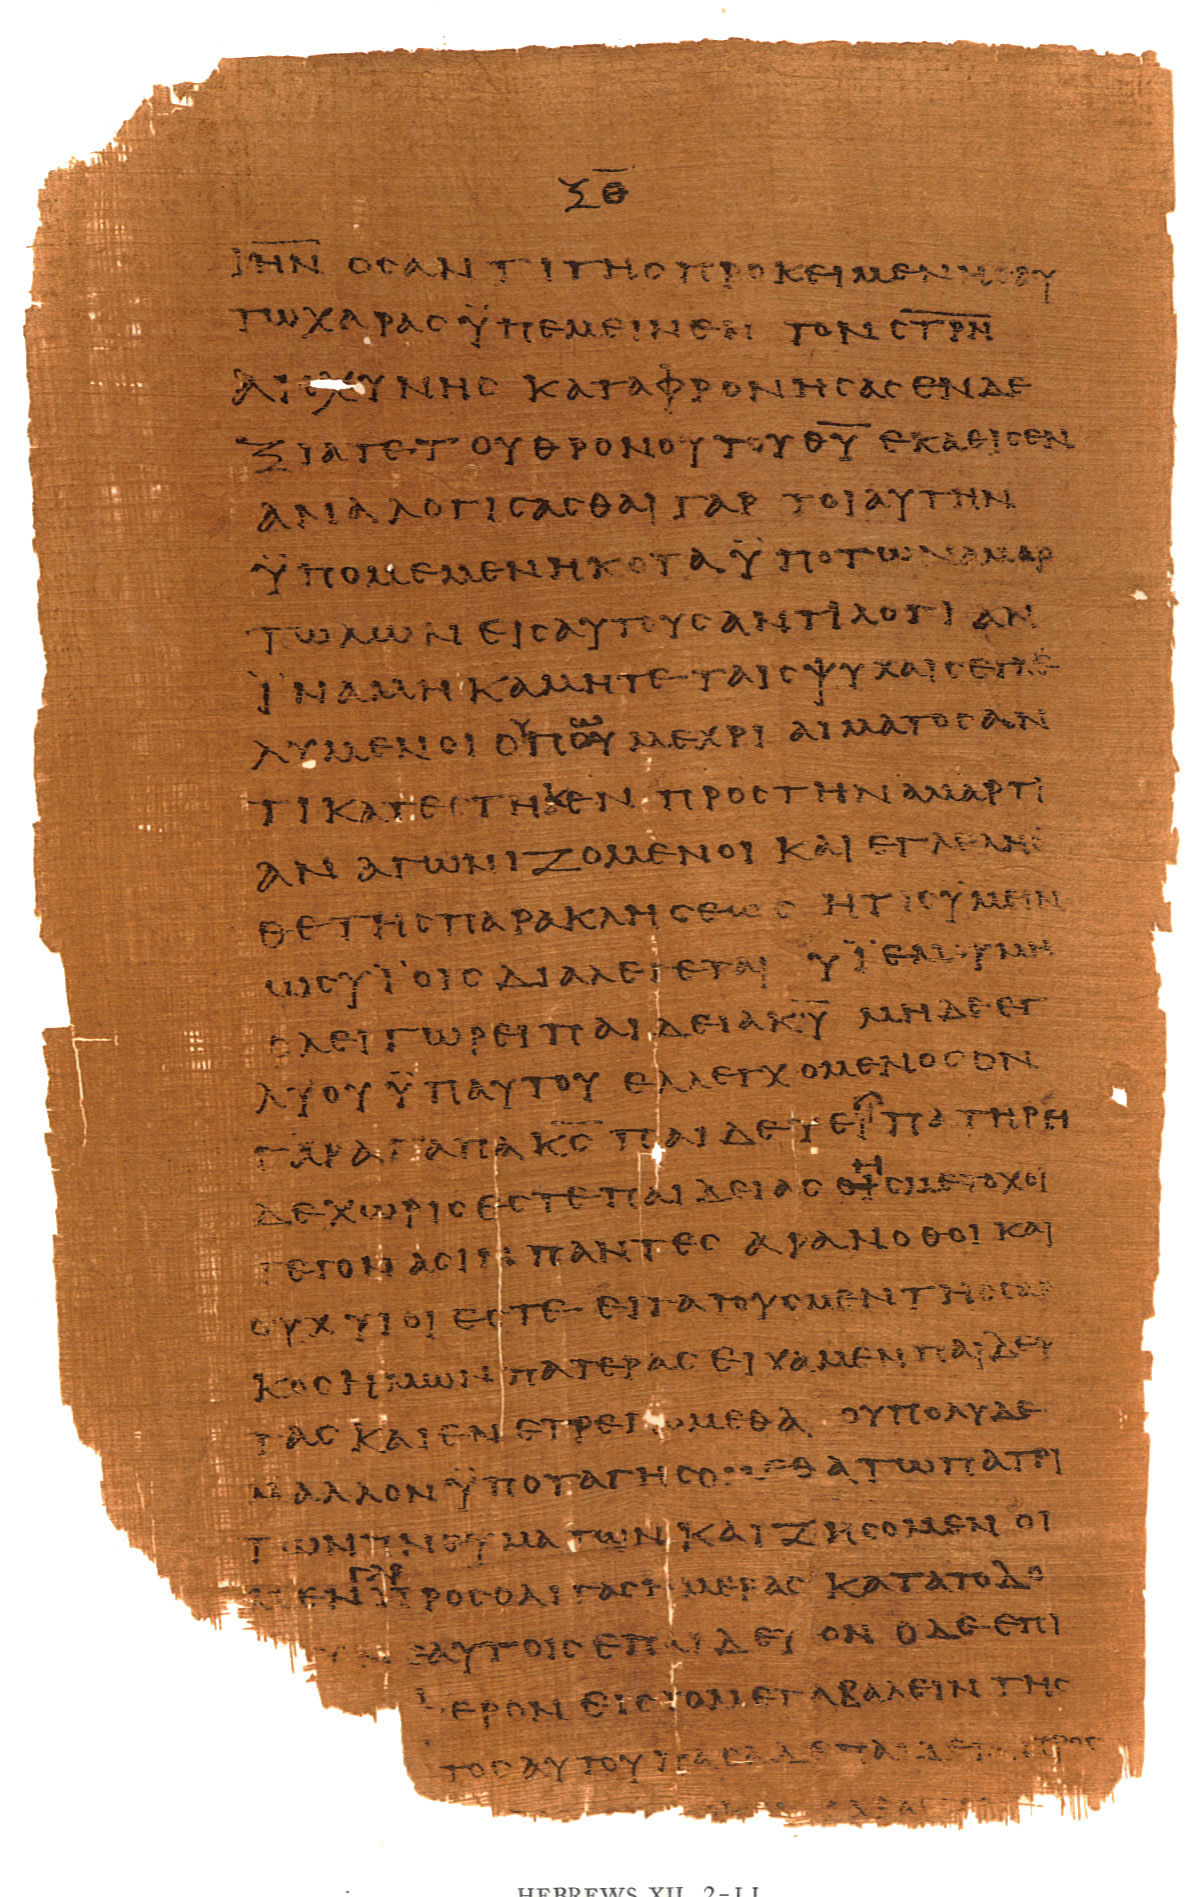 ΞΘ
ΙΗΝ ΟϹ ΑΝΤΙ ΤΗϹ ΠΡΟΚΕΙΜΕΝΗϹ ΑΥ
ΤΩ ΧΑΡΑϹ ΫΠΕΜΕΙΝΕΝ ΤΟΝ ϹΤΡΝ
ΑΙϹΧΥΝΗϹ ΚΑΤΑΦΡΟΝΗϹΑϹ ΕΝ ΔΕ
ΞΙΑ ΤΕ ΤΟΥ ΘΡΟΝΟΥ ΤΟΥ ΘΥ ΕΚΑΘΙϹΕΝ
ΑΝΑΛΟΓΙϹΑϹΘΑΙ ΓΑΡ ΤΟΙΑΥΤΗΝ
ΫΠΟΜΕΜΕΝΗΚΟΤΑ ΫΠΟ ΤΩΝ ΑΜΑΡ
ΤΩΛΩΝ ΕΙϹ ΑΥΤΟΥϹ ΑΝΤΙΛΟΓΙΑΝ
ΪΝΑ ΜΗ ΚΑΜΗΤΕ ΤΑΙϹ ΨΥΧΑΙϹ ΕΓΛΕ
ΛΥΜΕΝΟΙ ΟΥΠΩ ΜΕΧΡΙ ΑΙΜΑΤΟϹ ΑΝ
ΤΙΚΑΤΕϹΤΗΚΕΝ ΠΡΟϹ ΤΗΝ ΑΜΑΡΤΙ
ΑΝ ΑΓΩΝΙΖΟΜΕΝΟΙ ΚΑΙ ΕΓΛΕΛΗϹ
ΘΕ ΤΗϹ ΠΑΡΑΚΛΗϹΕΩϹ ΗΤΙϹ ΫΜΕΙΝ
ΩϹ ΥΪΟΙϹ ΔΙΑΛΕΓΕΤΑΙ ΥΪΕ ΜΟΥ ΜΗ
ΟΛΕΙΓΩΡΕΙ ΠΑΙΔΕΙΑ ΚΥ ΜΗΔΕ ΕΓ
ΛΥΟΥ ΫΠ ΑΥΤΟΥ ΕΛΛΕΓΧΟΜΕΝΟϹ ΟΝ
ΓΑΡ ΑΓΑΠΑ ΚϹ ΠΑΙΔΕΥΕΙ ΠΑΤΗΡ Η
ΔΕ ΧΩΡΙϹ ΕϹΤΕ ΠΑΙΔΕΙΑϹ ΗϹ ΜΕΤΟΧΟΙ
ΓΕΓΟΝΑϹΙΝ ΠΑΝΤΕϹ ΑΡΑ ΝΟΘΟΙ ΚΑΙ
ΟΥΧ ΥΙΟΙ ΕϹΤΕ ΕΙΤΑ ΤΟΥϹ ΜΕΝ ΤΗϹ ϹΑΡ
ΚΟϹ ΗΜΩΝ ΠΑΤΕΡΑϹ ΕΙΧΑΜΕΝ ΠΑΙΔΕΥ
ΤΑϹ ΚΑΙ ΕΝΕΤΡΕΠΟΜΕΘΑ ΟΥ ΠΟΛΥ ΔΕ
ΜΑΛΛΟΝ ΫΠΟΤΑΓΗϹΟΜΕΘΑ ΤΩ ΠΑΤΡΙ
ΤΩΝ ΠΝΟΥΜΑΤΩΝ ΚΑΙ ΖΗϹΟΜΕΝ ΟΙ
ΜΕΝ ΓΑΡ ΠΡΟϹ ΟΛΙΓΑϹ ΗΜΕΡΑϹ ΚΑΤΑ ΤΟ ΔΟ
ΑΥΤΟΙϹ ΕΠΑΙΔΕΥΟΝ Ο ΔΕ ΕΠΙ
ΦΕΡΟΝ ΕΙϹ ΤΟ ΜΕΤΑΛΑΒΕΙΝ ΤΗϹ
ΤΟϹ ΑΥΤΟΥ ΠΑϹΑ ΔΕ ΠΑΙΔΕΙΑ ΠΡΟϹ
HEBREWS XII. 2-11